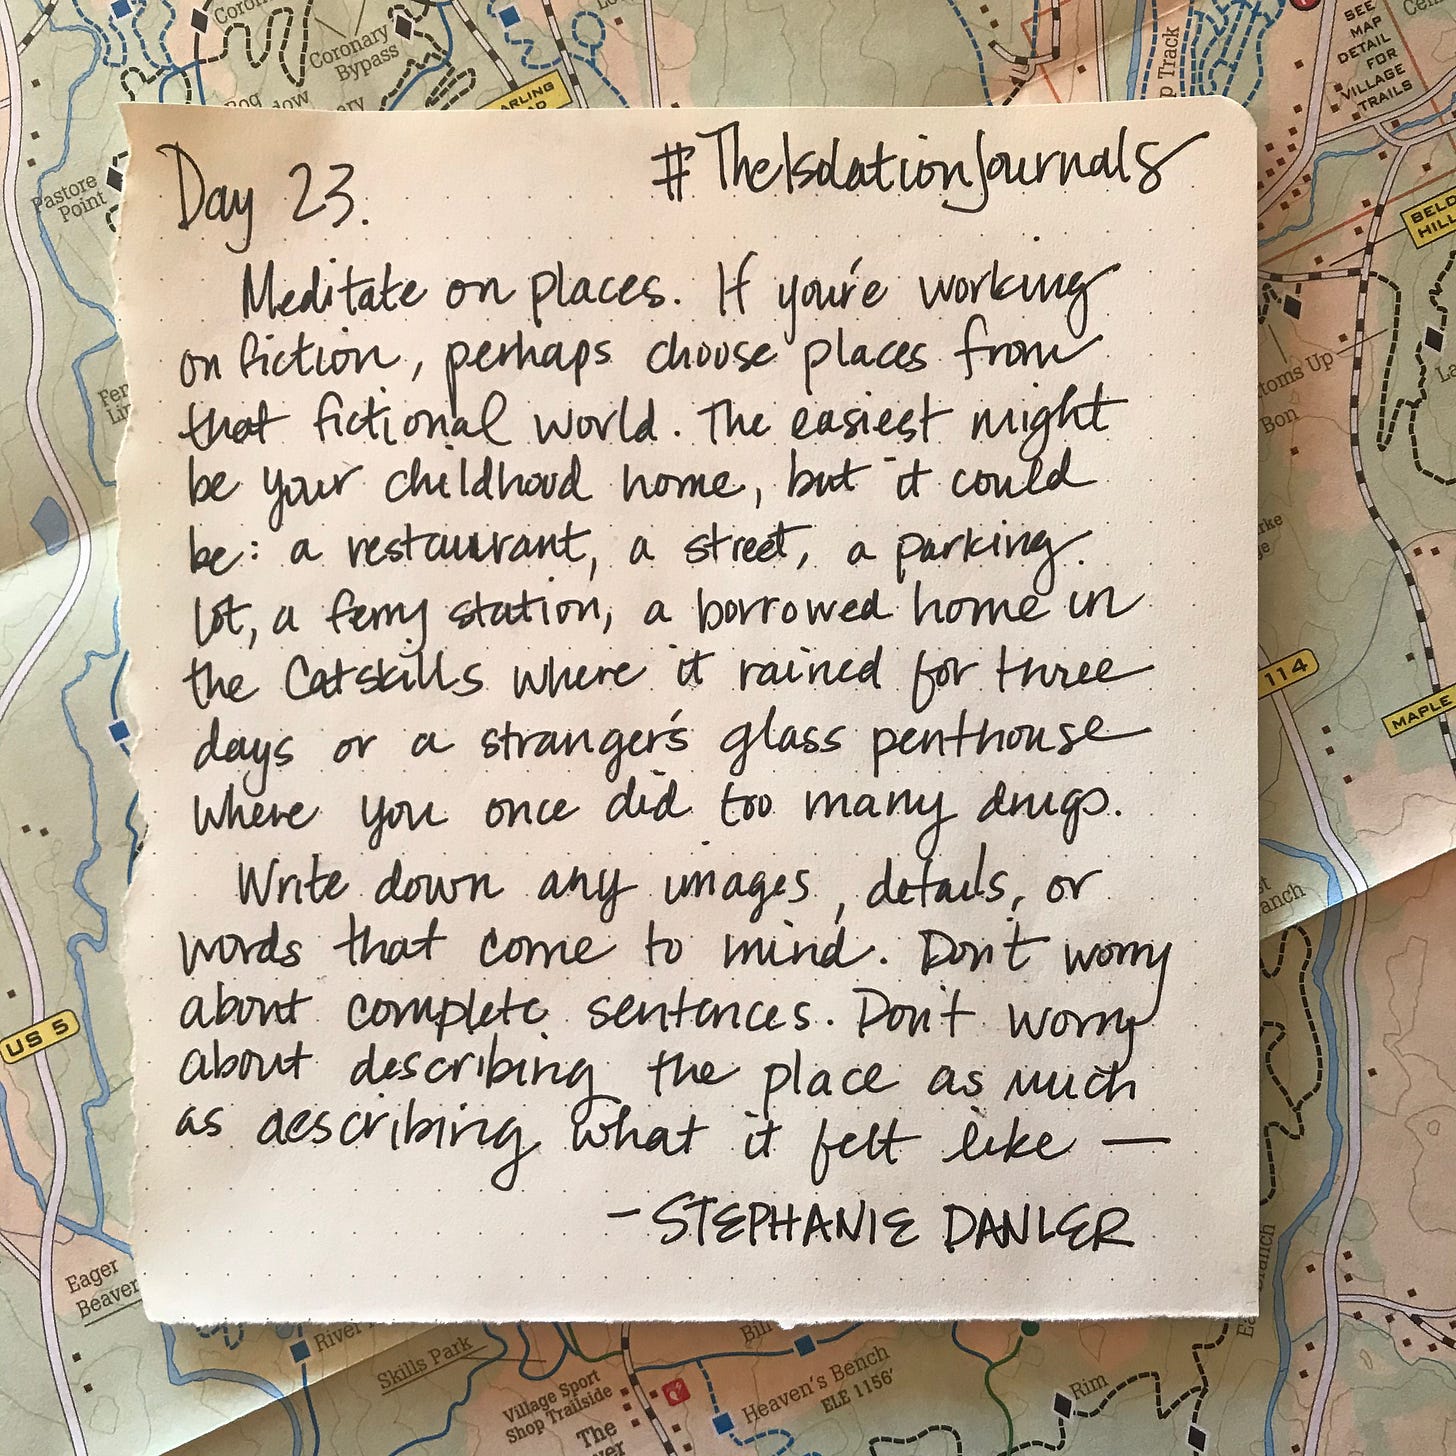 Coronary
Bypass
ARLING
SEE
MAP
DETAIL
FOR
VILLAGE
TRAILS
Track
Pastore
Point
Day 23.
#TheIsolationJournals
Meditate on places. If you're working
on fiction, perhaps choose places from
that fictional world. The easiest might
be your childhood home, but it could
be: a restaurant, a street, a parking
lot, a ferry station, a borrowed home in
the Catskills where it rained for three
days or a stranger's glass penthouse
where you once did too many drugs.
Write down any images, details, or
words that come to mind. Don't worry
about complete sentences. Don't worry
about describing the place as much
as describing what it felt like —
- STEPHANIE DANLER
HILL
Up
Bon
114
MAPLE
US 5
Eager
Beaver
River
Skills Park
Village Sport
Shop Trailside
The
Heaven's Bench
ELE 1156'
Rim